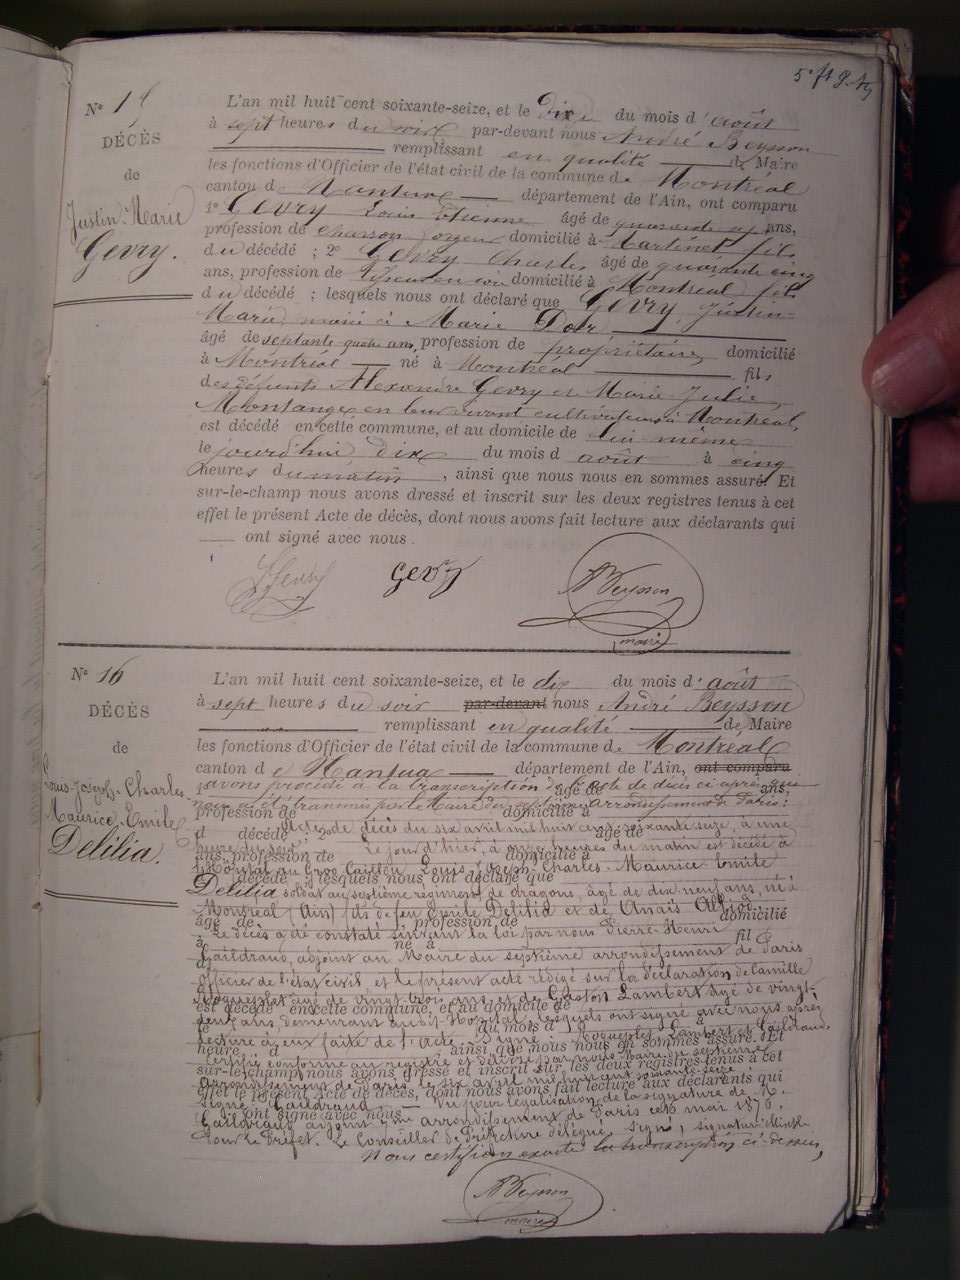 N° 14
DÉCÈS
de
Justin-Marie
Gevry.
L'an mil huit cent soixante-seize, et le dix du mois d'août
à sept heures du soir par-devant nous André Beysson
remplissant en qualité de Maire
les fonctions d'Officier de l'état civil de la commune de Montréal
canton de Nantua département de l'Ain, ont comparu
1° Gevry Louis Etienne âgé de quarante ans,
profession de charron domicilié à Martinet fils
du décédé ; 2° Gevry Charles âgé de quarante cinq
ans, profession de domicilié à Montréal fils
du décédé ; lesquels nous ont déclaré que Gevry Justin-
Marie, marié à Marie
âgé de septante quatre ans, profession de propriétaire domicilié
à Montréal né à Montréal fils
des défunts Alexandre Gevry et Marie-Julie
en leur vivant cultivateurs à Montréal,
est décédé en cette commune, et au domicile de lui même
le jourd'hui dix du mois d'août à cinq
heures du matin, ainsi que nous nous en sommes assuré. Et
sur-le-champ nous avons dressé et inscrit sur les deux registres tenus à cet
effet le présent Acte de décès, dont nous avons fait lecture aux déclarants qui
ont signé avec nous.
Gevry
Beysson
maire
N° 16
DÉCÈS
de
Louis-Joseph-Charles
Maurice-Emile
Delilia.
L'an mil huit cent soixante-seize, et le dix du mois d'août
à sept heures du soir par-devant nous André Beysson
remplissant en qualité de Maire
les fonctions d'Officier de l'état civil de la commune de Montréal
canton de Nantua département de l'Ain, ont comparu
avons procédé à la transcription de l'acte de décès ci après que
nous a été transmis par le Maire du septième arrondissement de Paris:
Acte de décès du six avril mil huit cent soixante seize, à une
heure du soir. Le jour d'hier, à onze heures du matin est décédé à
l'hôpital du Gros Caillou, Louis-Joseph-Charles-Maurice-Emile
Delilia soldat au septième régiment de dragons, âgé de dix neuf ans, né à
Montréal (Ain) fils de feu Emile Delilia et de Anaïs
Le décès a été constaté suivant la loi par nous Pierre-Henri
Gaildraud, adjoint au Maire du septième arrondissement de Paris
officier de l'état civil, et le présent acte rédigé sur la déclaration de Camille
âgé de vingt trois ans, et de Gaston Lambert âgé de vingt-
ans, demeurant audit hôpital, lesquels ont signé avec nous après
lecture à eux faite de l'acte. Signé: Lambert et Gaildraud.
Certifié conforme au registre et délivré par nous Maire du septième
arrondissement de Paris, le six avril mil huit cent soixante seize.
Signé Gaildraud. Vu pour légalisation de la signature de M.
Gaildraud adjoint 7me arrondissement de Paris ce 16 mai 1876.
Pour le Préfet. Le Conseiller de Préfecture délégué, signé, signature illisible
Nous certifions exacte la transcription ci-dessus,
Beysson
maire